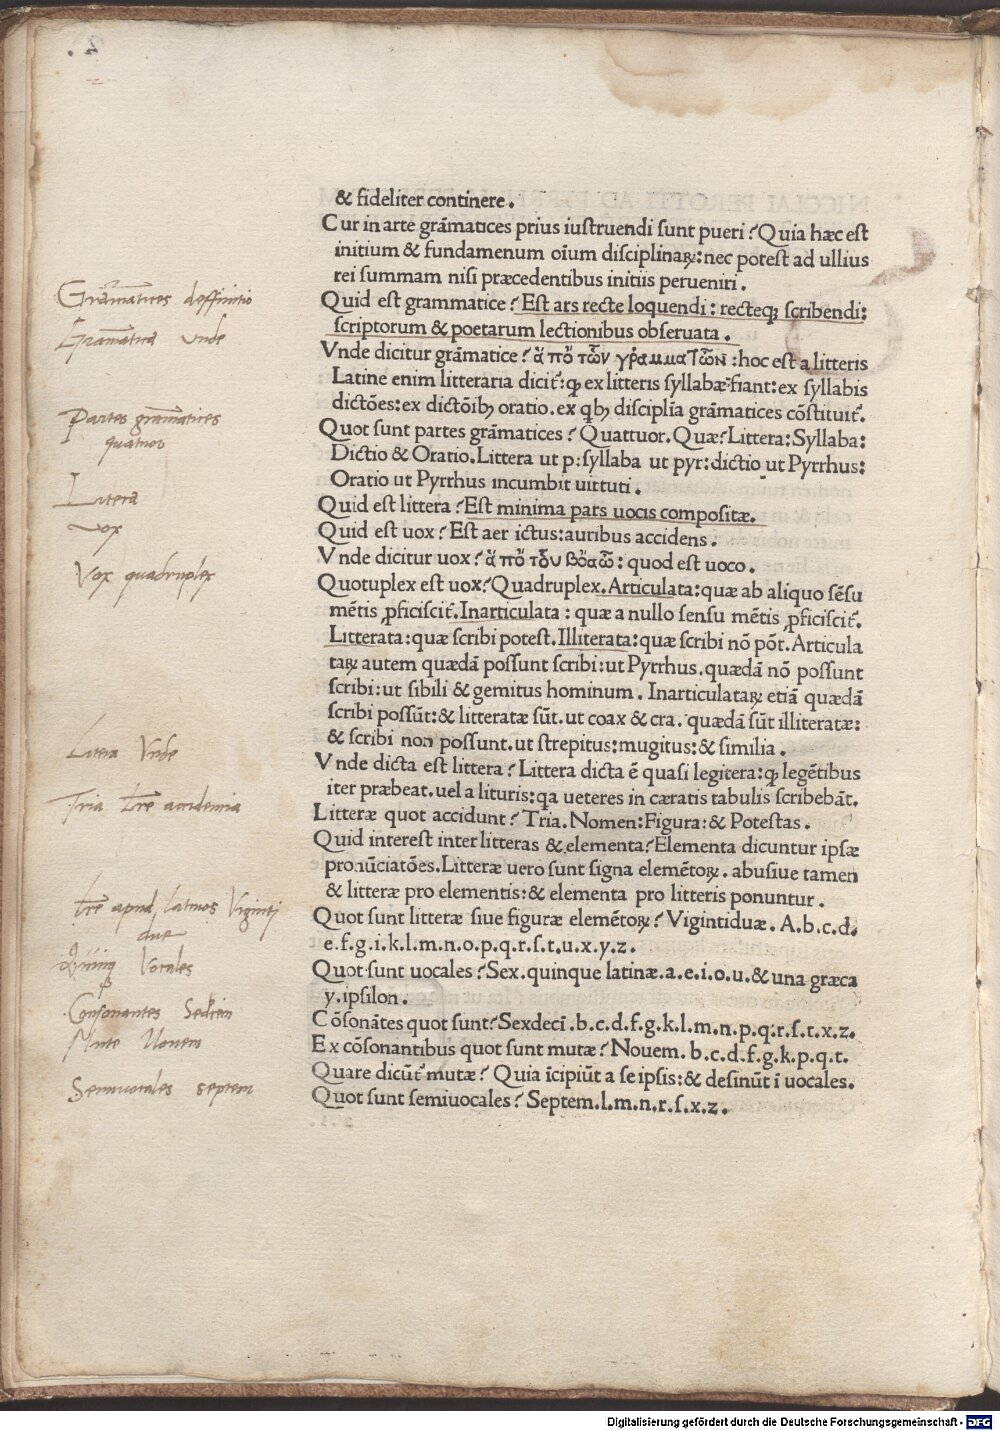 & fideliter continere.
Cur in arte grãmatices prius iustruendi sunt pueri? Quia hæc est
initium & fundamenum oĩum disciplinaꝝ: nec potest ad ullius
rei summam nisi præcedentibus initiis perueniri.
Grãmatices deffinitio
Quid est grammatice? Est ars recte loquendi: recteqꝫ scribendi:
scriptorum & poetarum lectionibus obseruata.
Gramatica Vnde
Vnde dicitur grãmatice? ἄπὄ τῶν γραμμαΤῶν: hoc est a litteris
Latine enim litteraria dicit᷑: ꝙ ex litteris syllabæ fiant: ex syllabis
dictões: ex dictõibꝫ oratio. ex qbꝫ discipl̃ia grãmatices cõstituit᷑.
Partes grãmatices
quatuor
Quot sunt partes grãmatices? Quattuor. Quæ? Littera: Syllaba:
Dictio & Oratio. Littera ut p: syllaba ut pyr: dictio ut Pyrrhus:
Oratio ut Pyrrhus incumbit uirtuti.
Litera
Quid est littera? Est minima pars uocis compositæ.
Vox
Quid est uox? Est aer ictus: auribus accidens.
Vnde dicitur uox? ἄπὄ τὄυ βὄαῶ: quod est uoco.
Vox quadruplex
Quotuplex est uox? Quadruplex. Articulata: quæ ab aliquo sẽsu
mẽtis ꝓficiscit᷑. Inarticulata: quæ a nullo sensu mẽtis ꝓficiscit᷑.
Litterata: quæ scribi potest. Illiterata: quæ scribi nõ põt. Articula
taꝝ autem quædã possunt scribi: ut Pyrrhus. quædã nõ possunt
scribi: ut sibili & gemitus hominum. Inarticulataꝝ etiã quædã
scribi possũt: & litteratæ sũt. ut coax & cra. quædã sũt illiteratæ:
& scribi non possunt. ut strepitus: mugitus: & similia.
Litera Vnde
Vnde dicta est littera? Littera dicta ẽ quasi legitera: ꝙ legẽtibus
iter præbeat. uel a lituris: qa ueteres in cæratis tabulis scribebãt.
Tria lr̃e accidentia
Litteræ quot accidunt? Tria. Nomen: Figura: & Potestas.
Quid interest inter litteras & elementa? Elementa dicuntur ipsæ
pronũciatões. Litteræ uero sunt signa elemẽtoꝝ. abusiue tamen
& litteræ pro elementis: & elementa pro litteris ponuntur.
lr̃e apud latinos Viginti
due
Quot sunt litteræ siue figuræ elemẽtoꝝ? Vigintiduæ. A.b.c.d.
e.f.g.i.k.l.m.n.o.p.q.r.s.t.u.x.y.z.
Quinqꝫ Vocales
Quot sunt uocales? Sex. quinque latinæ. a.e.i.o.u. & una græca
y. ipsilon.
Consonantes Sedecim
Cõsonãtes quot sunt? Sexdecĩ. b.c.d.f.g.k.l.m.n.p.q.r.s.t.x.z.
Mute Nouem
Ex cõsonantibus quot sunt mutæ? Nouem. b.c.d.f.g.k.p.q.t.
Quare dicũt᷑ mutæ? Quia ĩcipiũt a se ipsis: & desinũt ĩ uocales.
Semiuocales septem
Quot sunt semiuocales? Septem. l.m.n.r.s.x.z.
Digitalisierung gefördert durch die Deutsche Forschungsgemeinschaft - DFG